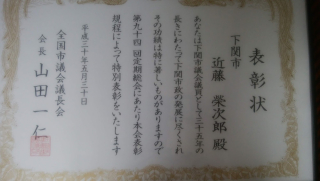 表彰状
下関市
近藤榮次郎殿
あなたは下関市議会議員として三十五年の
長きにわたって下関市政の発展に尽くされ
その功績は特に著しいものがありますので
第九十四回定期総会にあたり本会表彰
規程によって特別表彰をいたします
平成三十年五月三十日
全国市議会議長会
会長 山田一仁